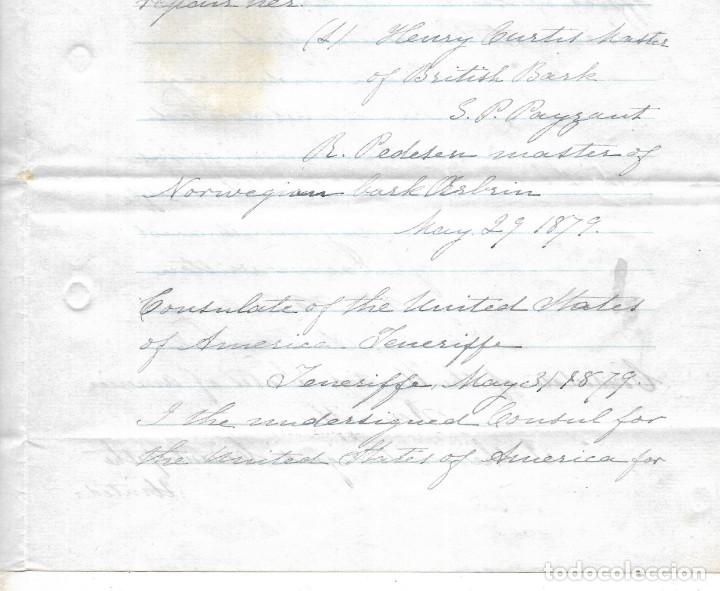 repair her.
(S) Henry Curtis Master
of British Bark
S. P. Payzant
R. Pedesen master of
Norwegian bark
May 29 1879.
Consulate of the United States
of America. Teneriffe
Teneriffe, May 31 1879.
I the undersigned Consul for
the United States of America for
todocoleccion.net